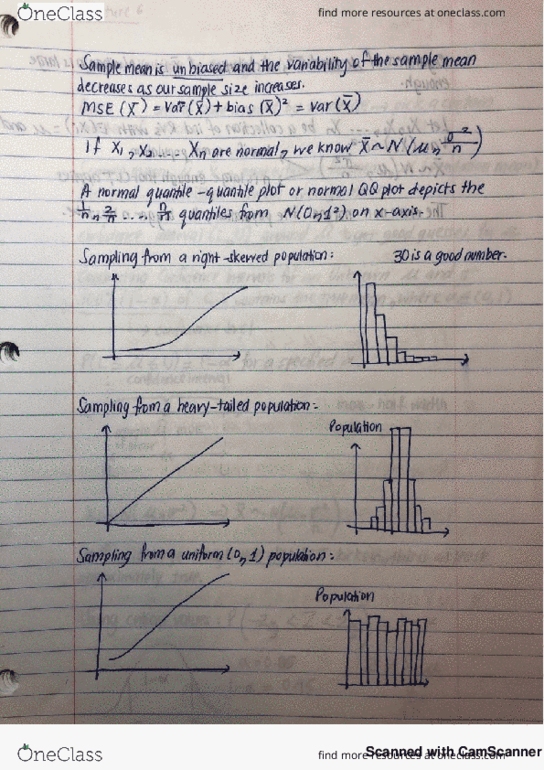 OneClass
find more resources at oneclass.com
Sample mean is unbiased and the variability of the sample mean
decreases as our sample size increases.
MSE (X̄) = var (X̄) + bias (X̄)² = var (X̄)
If X₁, X₂ .... Xn are normal, we know X̄ ~ N (μ, σ²/n)
A normal quantile-quantile plot or normal QQ plot depicts the
1/n, 2/n .... n/n quantiles from N(0,1²) on x-axis.
Sampling from a right-skewed population: 30 is a good number.
Sampling from a heavy-tailed population:
Population
Sampling from a uniform (0,1) population:
Population
OneClass
find more resources at oneclass.com
Scanned with CamScanner